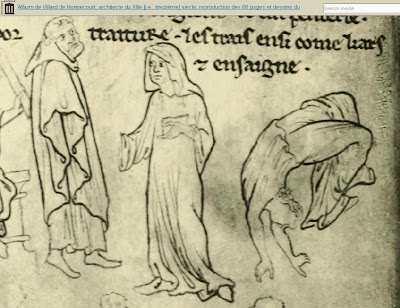 Album de Villard de Honnecourt, architecte du XIIIe [i.e., treizième] siècle; reproduction des 66 pages et dessins du
Search inside
por traiture · les trais ensi come li ars
⁊ ensaigne ·